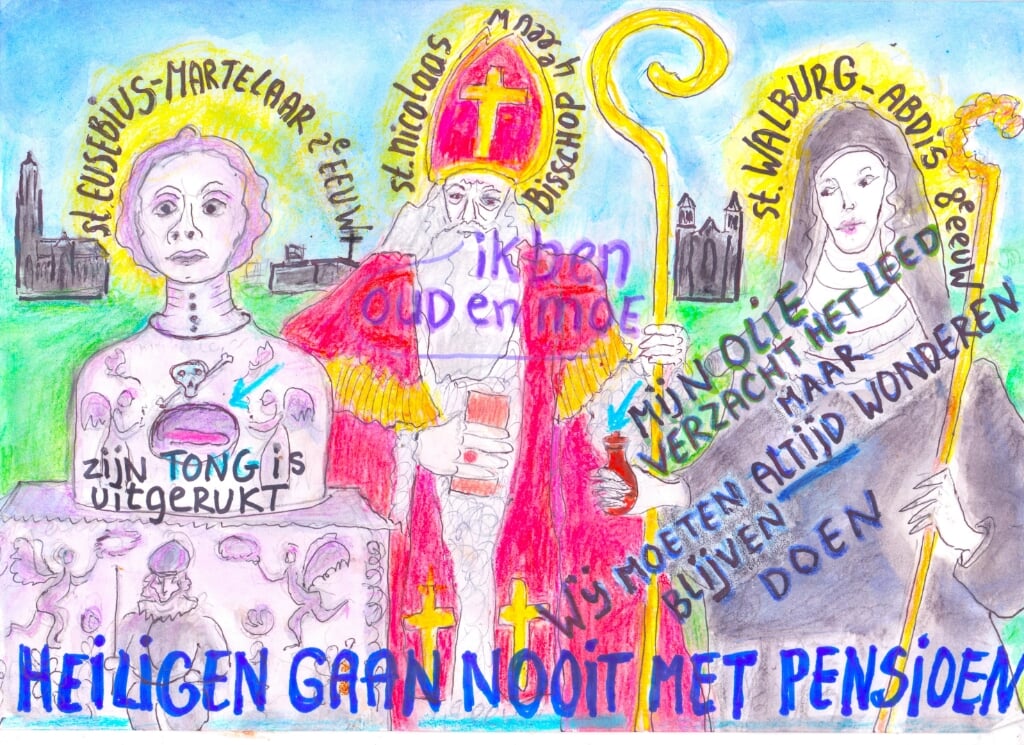 St. EUSEBIUS-MARTELAAR 2e EEUW
St. nicolaas
BISSCHOP
St. WALBURG-ABDIS 8e eeuw
ik ben
OUD en MOE
MIJN OLIE
VERZACHT HET LEED
MAAR
WIJ MOETEN AltIJD WONDEREN
BLIJVEN
DOEN
ZIJN TONG is
uitgerukt
HEiLiGEN GAAN NOOiT MET PENSiOEN